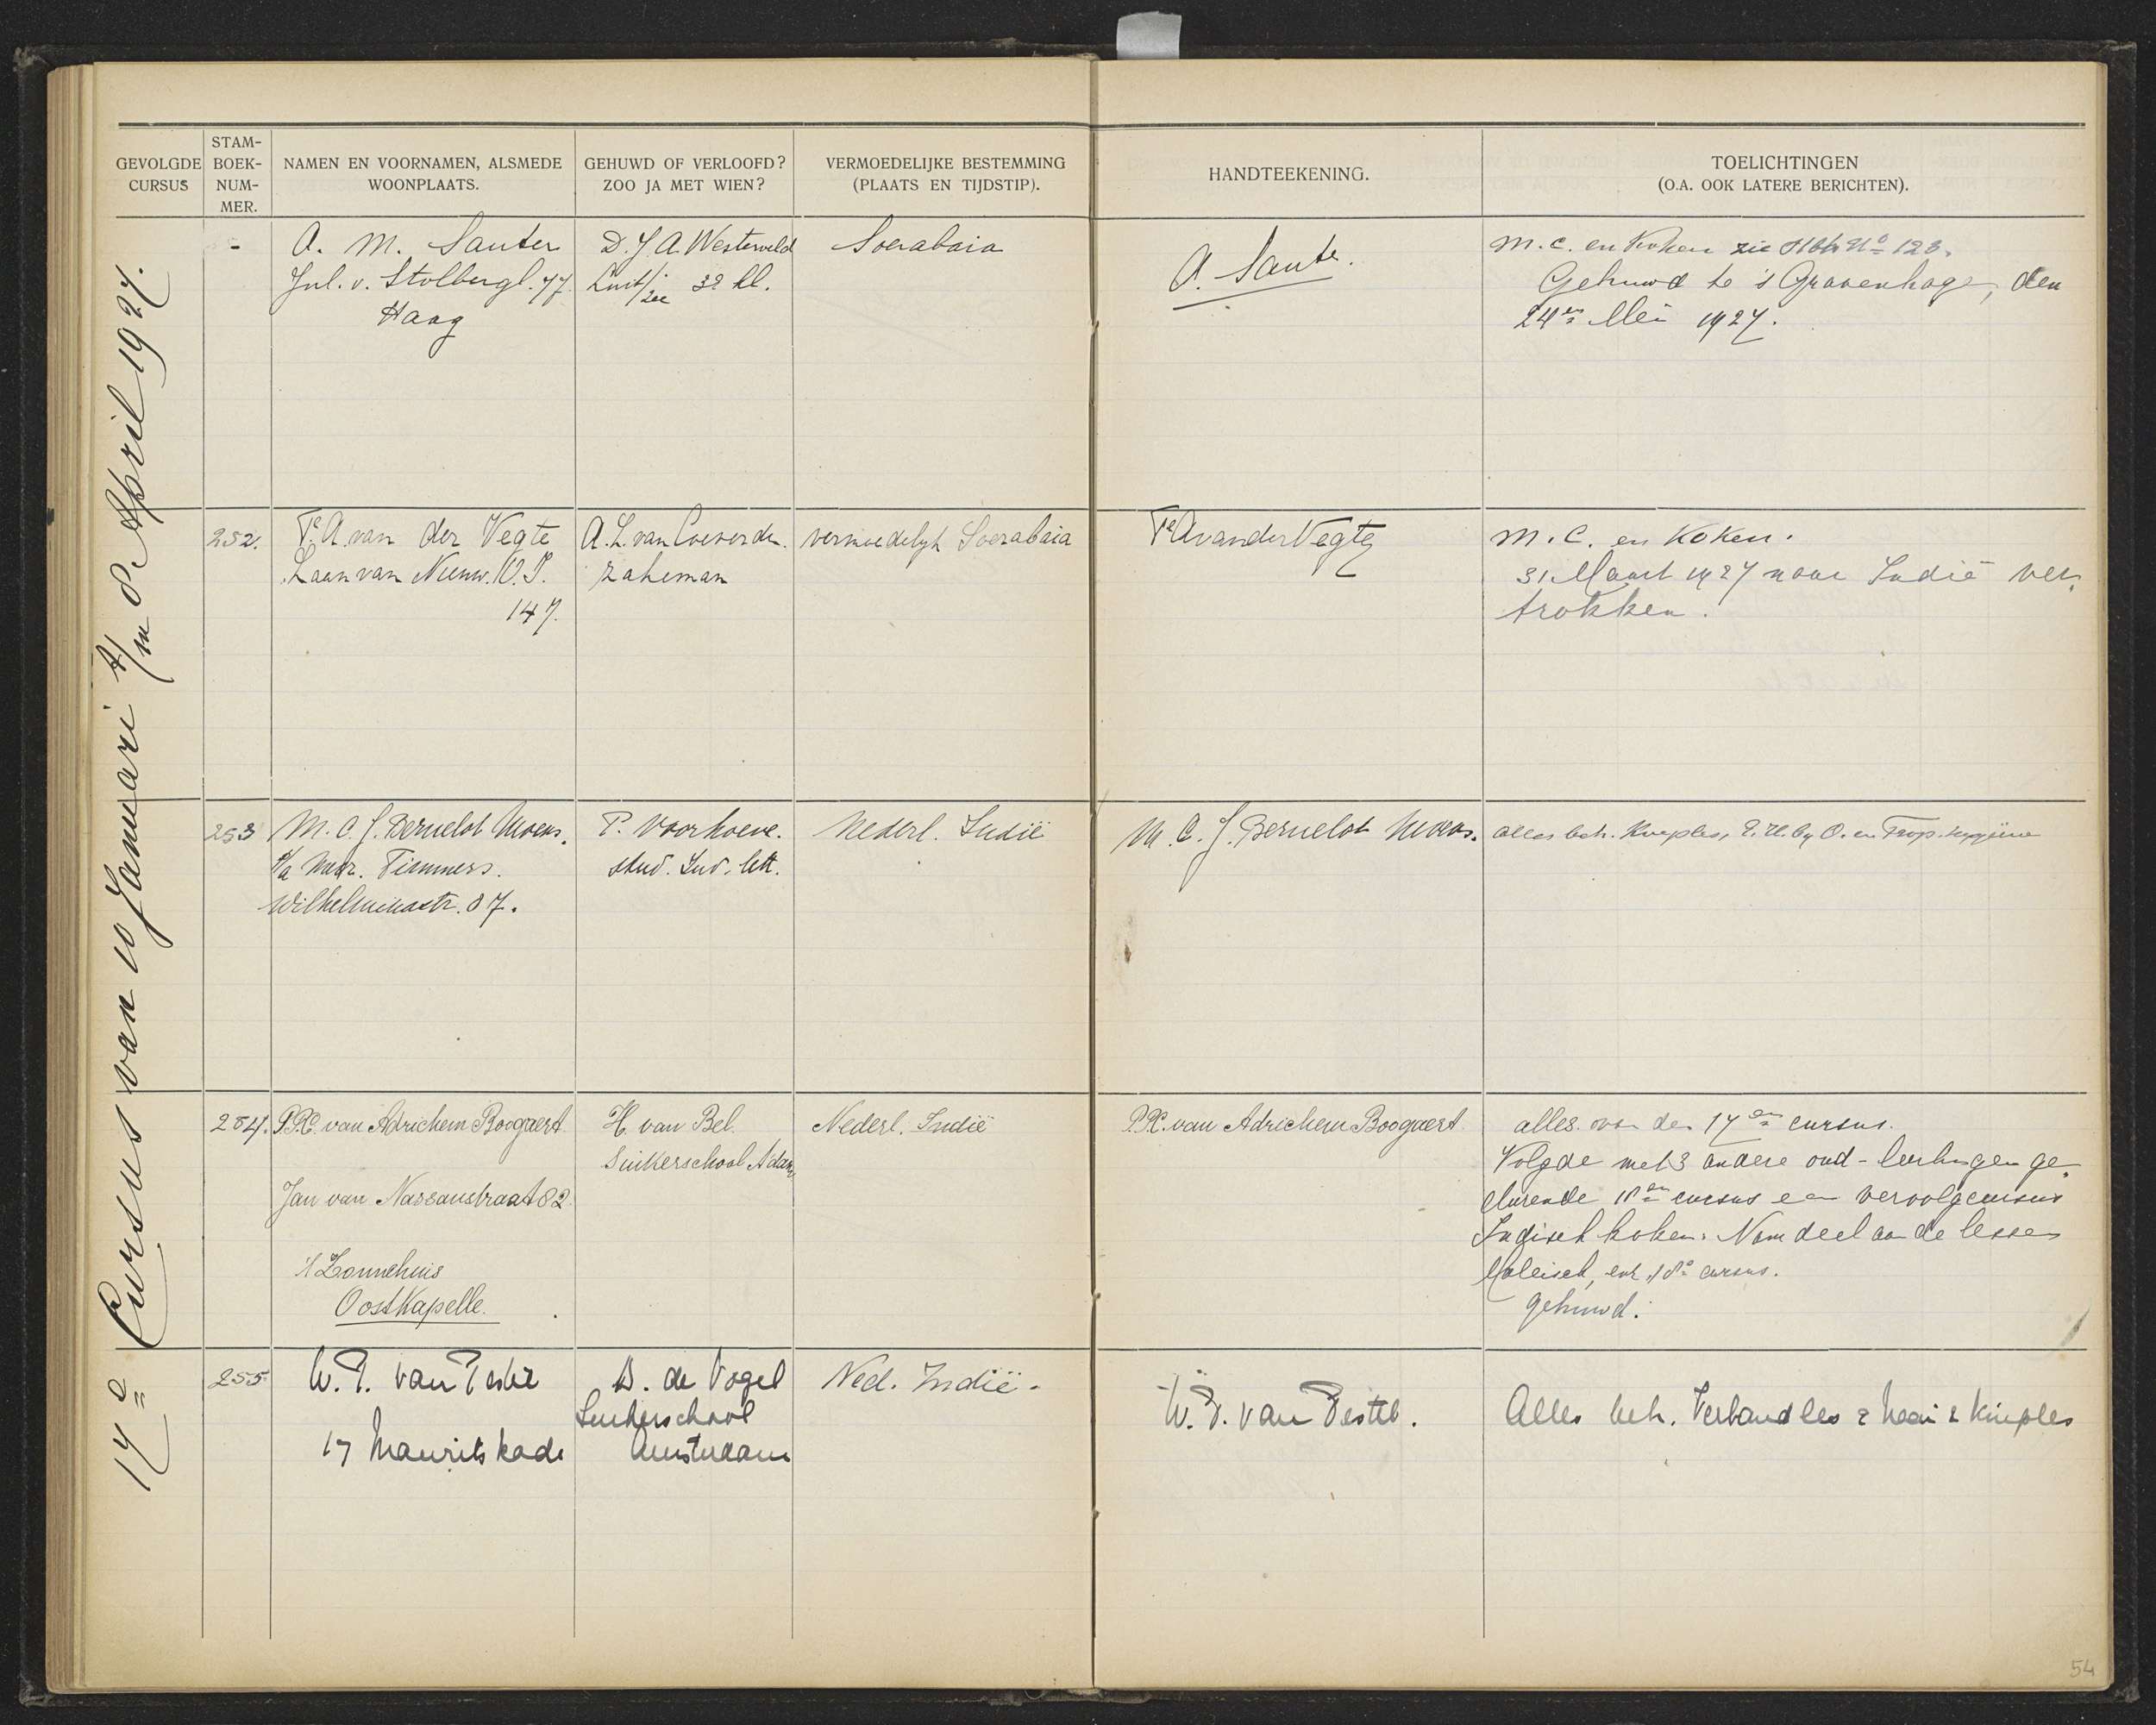 GEVOLGDE CURSUS
STAM-BOEK-NUM-MER.
NAMEN EN VOORNAMEN, ALSMEDE WOONPLAATS.
GEHUWD OF VERLOOFD? ZOO JA MET WIEN?
VERMOEDELIJKE BESTEMMING (PLAATS EN TIJDSTIP).
HANDTEEKENING.
TOELICHTINGEN
(O.A. OOK LATERE BERICHTEN).
17e Cursus van 10 Januari t/m 8 April 1927.
-
A. M. Sauter
Jul. v. Stolbergl. 77
Haag
D. J. A. Westerveld
Luit/zee 3e kl.
Soerabaia
A. Saute.
M.C. en Koken zie Stbk No 128.
Gehuwd te 's Gravenhage, den
24en Mei 1927.
252.
A. van der Vegte
Laan van Nieuw. O. I.
147.
A. L. van Coeverden.
zakeman
vermoedelijk Soerabaia
A van der Vegte
M.C. en Koken.
31 Maart 1927 naar Indië ver-
trokken.
253
M. C. J. Bernelot Moens.
p/a Mevr. Timmers.
Wilhelminastr. 87.
P. Voorhoeve.
stud. Ind. lett.
Nederl. Indië
M. C. J. Bernelot Moens.
alles beh. Kniples, E.H. bij O. en Trop. hygiëne
254.
P.R.C. van Adrichem Boogaert
Jan van Nassaustraat 82
't Zonnehuis
Oostkapelle.
H. van Bel
Suikerschool Adam
Nederl. Indië
van Adrichem Boogaert
alles van den 17en cursus.
Volgde met 3 andere oud-leerlingen ge-
durende 18en cursus een vervolgcursus
Indisch koken. Nam deel aan de lessen
Maleisch, 18e cursus.
gehuwd.
255
W. P. van Pestel
17 Mauritskade
D. de Vogel
Suikerschool
Amsterdam
Ned. Indië.
W. P. van Pestel.
Alles beh. Verbandles & Naai & Kniples
54